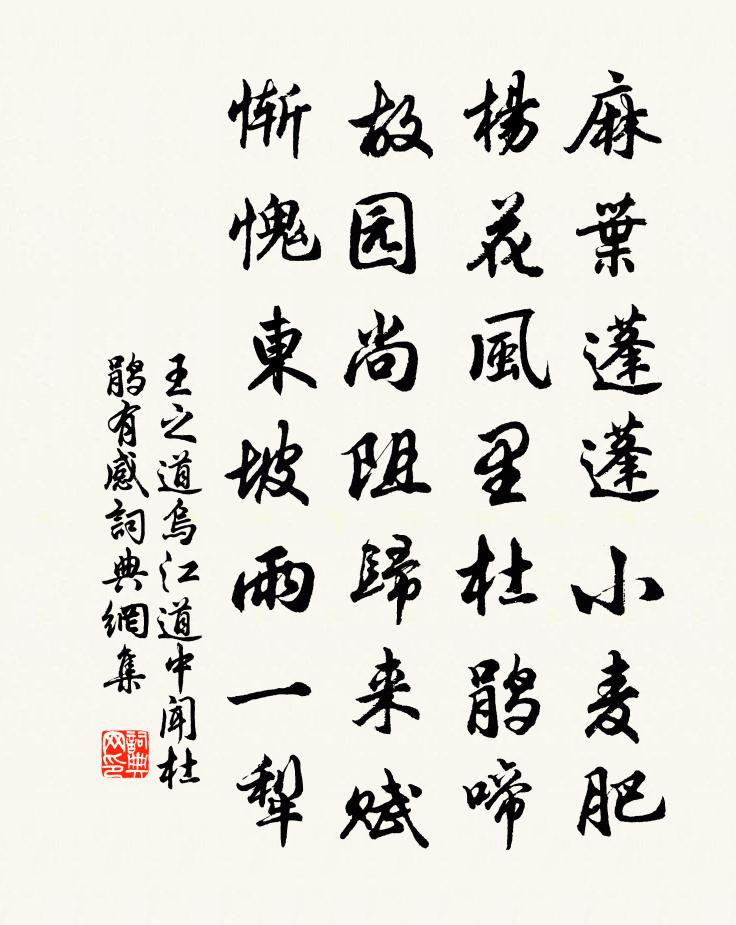 麻葉蓬蓬小麦肥
楊花風里杜鹃啼
故园尚阻歸来赋
慚愧東坡雨一犁
王之道烏江道中聞杜
鹃有感詞典網集
詞典网印